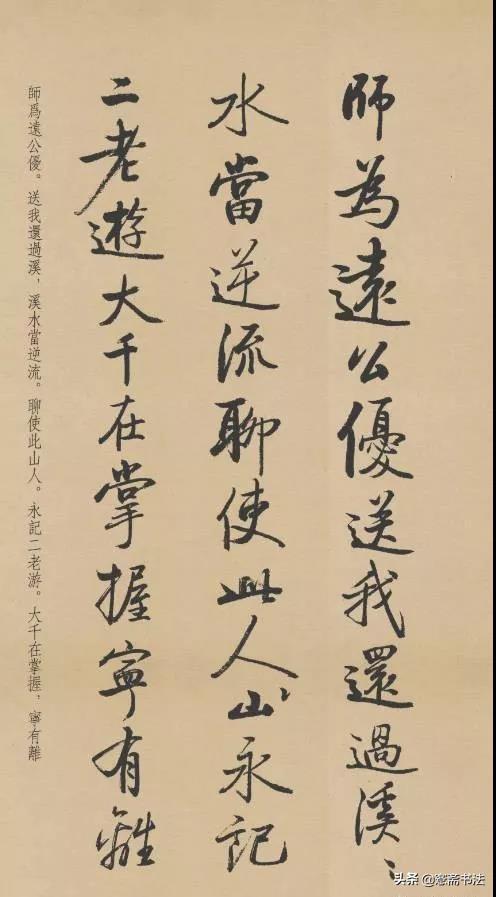 師為遠公優送我還過溪〻
水當逆流聊使此人山永記
二老遊大千在掌握寧有離
師爲遠公優。送我還過溪，溪水當逆流。聊使此山人。永記二老游。大千在掌握，寧有離
头条@愙斋书法